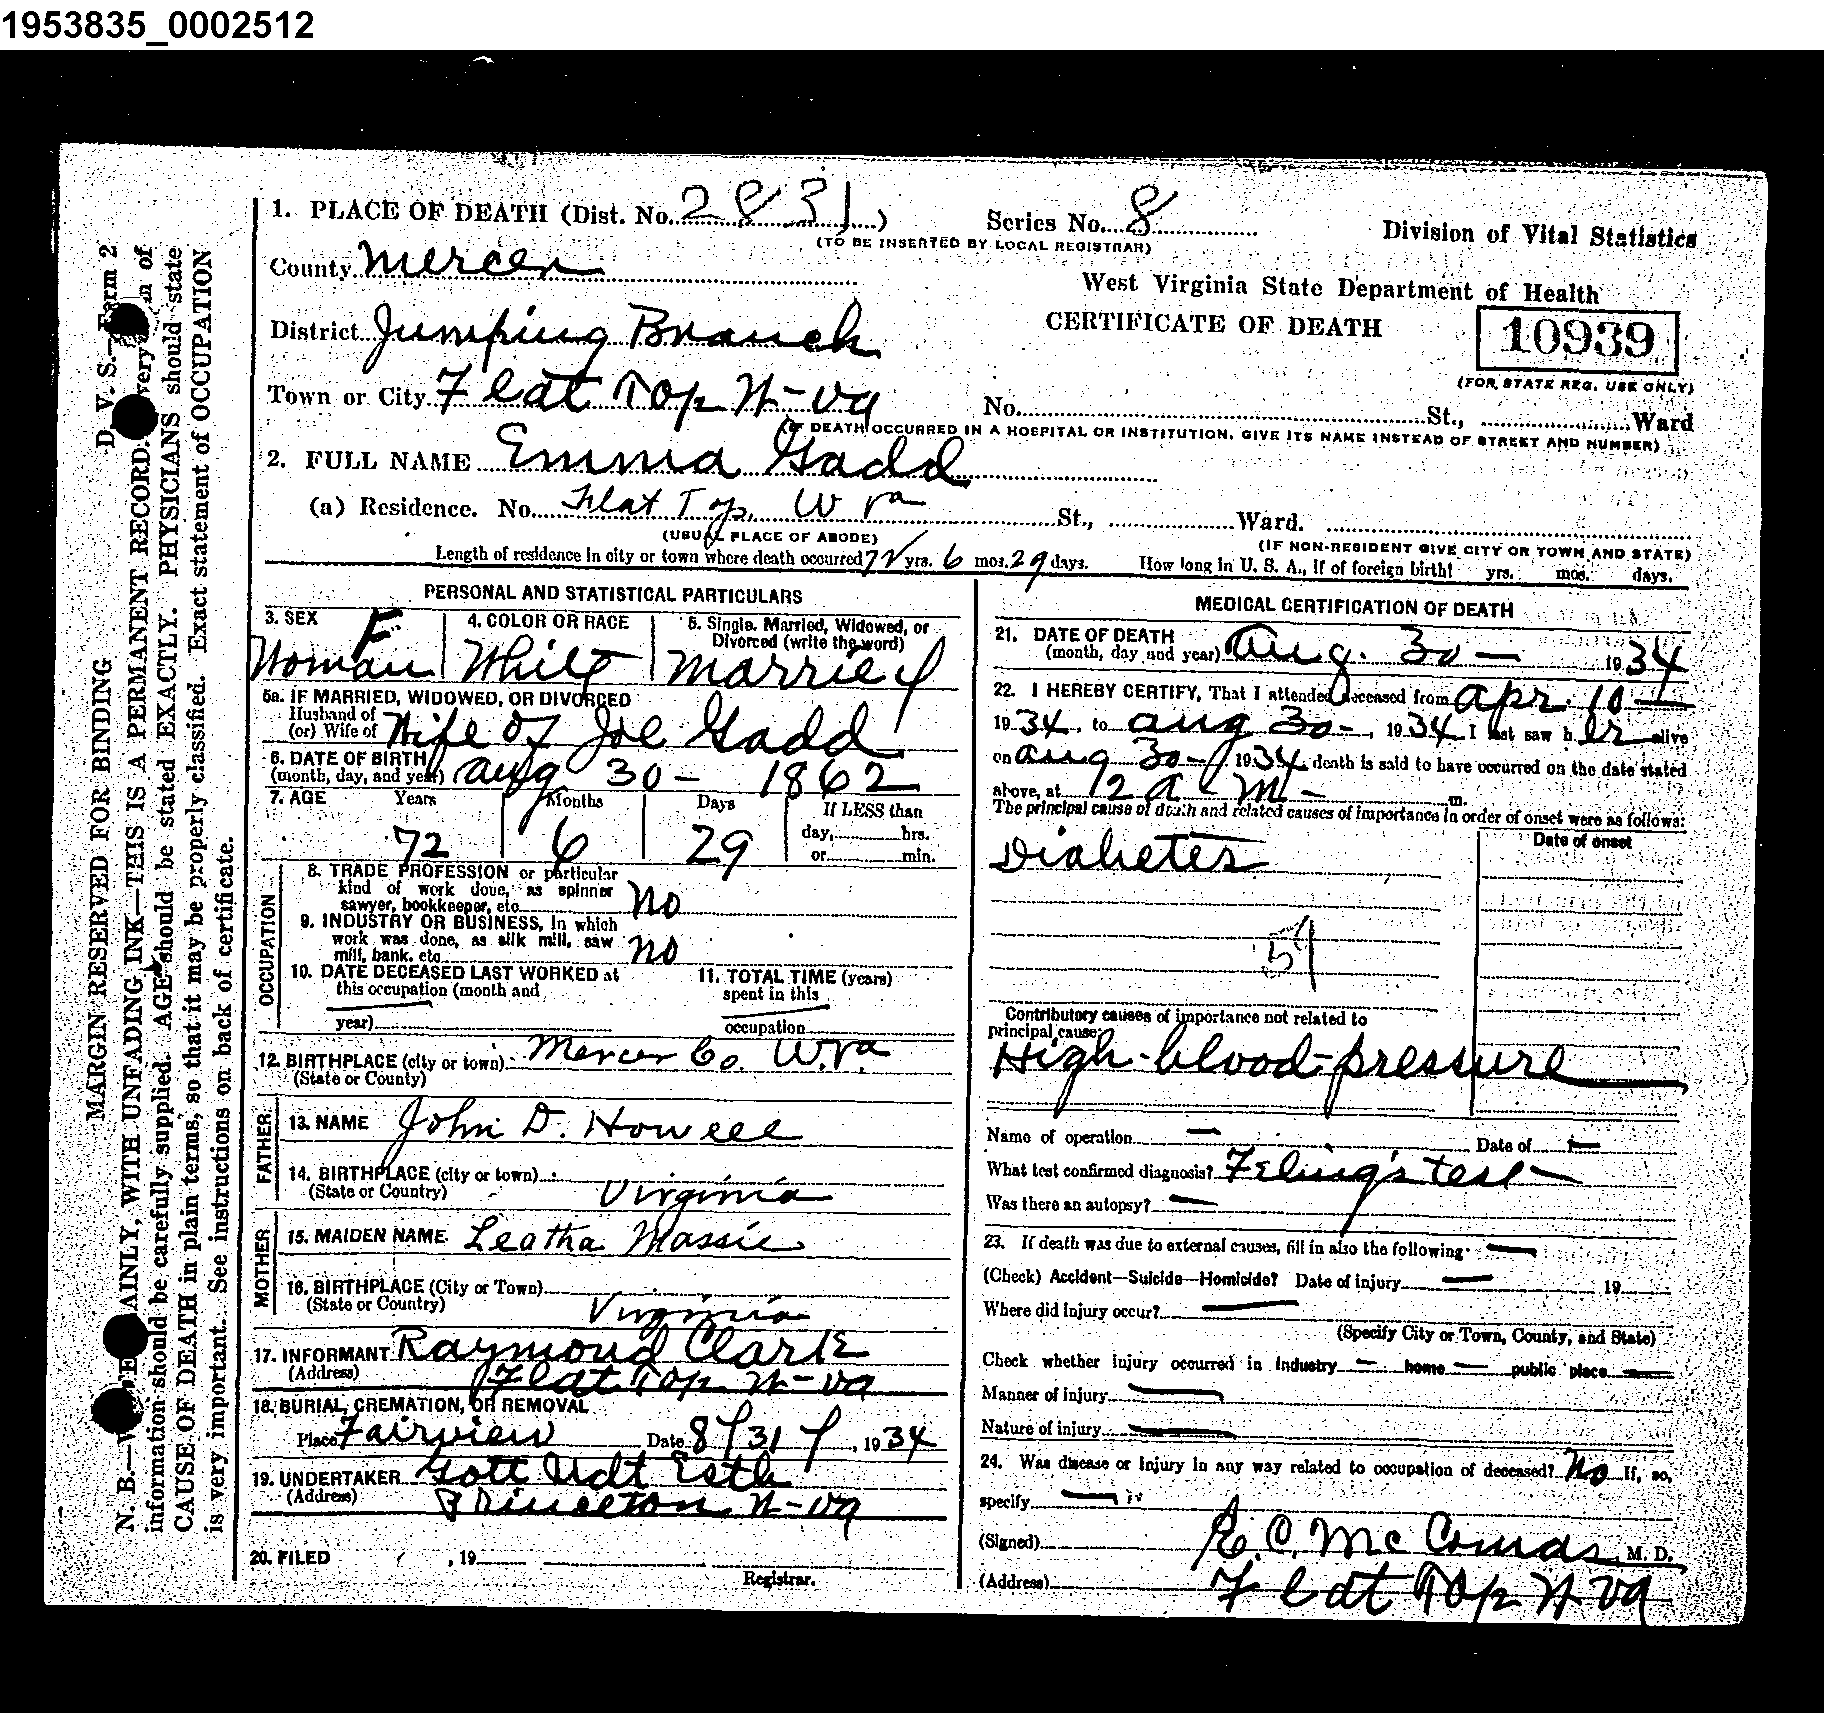 1953835_0002512
1. PLACE OF DEATH (Dist. No. 2831)
Series No. 8
(TO BE INSERTED BY LOCAL REGISTRAR)
Division of Vital Statistics
County Mercer
West Virginia State Department of Health
District Jumping Branch
CERTIFICATE OF DEATH
10939
(FOR STATE REG. USE ONLY)
Town or City Flat Top W-va
No. St., Ward
(IF DEATH OCCURRED IN A HOSPITAL OR INSTITUTION, GIVE ITS NAME INSTEAD OF STREET AND NUMBER)
2. FULL NAME Emma Gadd
(a) Residence. No. Flat Top W Va St., Ward.
(USUAL PLACE OF ABODE)
(IF NON-RESIDENT GIVE CITY OR TOWN AND STATE)
Length of residence in city or town where death occurred 72 yrs. 6 mos. 29 days. How long in U. S. A., if of foreign birth? yrs. mos. days.
PERSONAL AND STATISTICAL PARTICULARS
3. SEX F
Woman
4. COLOR OR RACE
White
5. Single, Married, Widowed, or
Divorced (write the word)
Married
5a. IF MARRIED, WIDOWED, OR DIVORCED
Husband of
(or) Wife of Wife of Joe Gadd
6. DATE OF BIRTH
(month, day, and year) Aug 30- 1862
7. AGE Years Months Days If LESS than
day, hrs.
or min.
72 6 29
OCCUPATION
8. TRADE PROFESSION or particular
kind of work done, as spinner
sawyer, bookkeeper, etc. No
9. INDUSTRY OR BUSINESS, in which
work was done, as silk mill, saw
mill, bank, etc. No
10. DATE DECEASED LAST WORKED at
this occupation (month and
year)
11. TOTAL TIME (years)
spent in this
occupation
12. BIRTHPLACE (city or town) Mercer Co. W.Va.
(State or County)
FATHER
13. NAME John D. Howell
14. BIRTHPLACE (city or town)
(State or Country) Virginia
MOTHER
15. MAIDEN NAME Leatha Massie
16. BIRTHPLACE (City or Town)
(State or Country) Virginia
17. INFORMANT Raymond Clark
(Address) Flat Top W-va
18. BURIAL, CREMATION, OR REMOVAL
Place Fairview Date 8/31/, 1934
19. UNDERTAKER Gott Udt Estb
(Address) Princeton W-va
20. FILED , 19
Registrar.
MEDICAL CERTIFICATION OF DEATH
21. DATE OF DEATH
(month, day and year) Aug. 30- 1934
22. I HEREBY CERTIFY, That I attended deceased from Apr. 10-
1934, to Aug 30-, 1934 I last saw h er alive
on Aug 30-, 1934 death is said to have occurred on the date stated
above, at 12 a-m- m.
The principal cause of death and related causes of importance in order of onset were as follows:
Date of onset
Diabetes
59
Contributory causes of importance not related to
principal cause:
High-blood-pressure
Name of operation — Date of —
What test confirmed diagnosis? Feling's test-
Was there an autopsy? —
23. If death was due to external causes, fill in also the following: —
(Check) Accident—Suicide—Homicide? Date of injury — 19
Where did injury occur? —
(Specify City or Town, County, and State)
Check whether injury occurred in industry — home — public place —
Manner of injury —
Nature of injury —
24. Was disease or injury in any way related to occupation of deceased? No If, so,
specify —
(Signed) E. C. McComas, M. D.
(Address) Flat Top W va
D. V. S.—Form 2
MARGIN RESERVED FOR BINDING
AINLY, WITH UNFADING INK—THIS IS A PERMANENT RECORD.
information should be carefully supplied. AGE should be stated EXACTLY. PHYSICIANS should state
CAUSE OF DEATH in plain terms, so that it may be properly classified. Exact statement of OCCUPATION
is very important. See instructions on back of certificate.